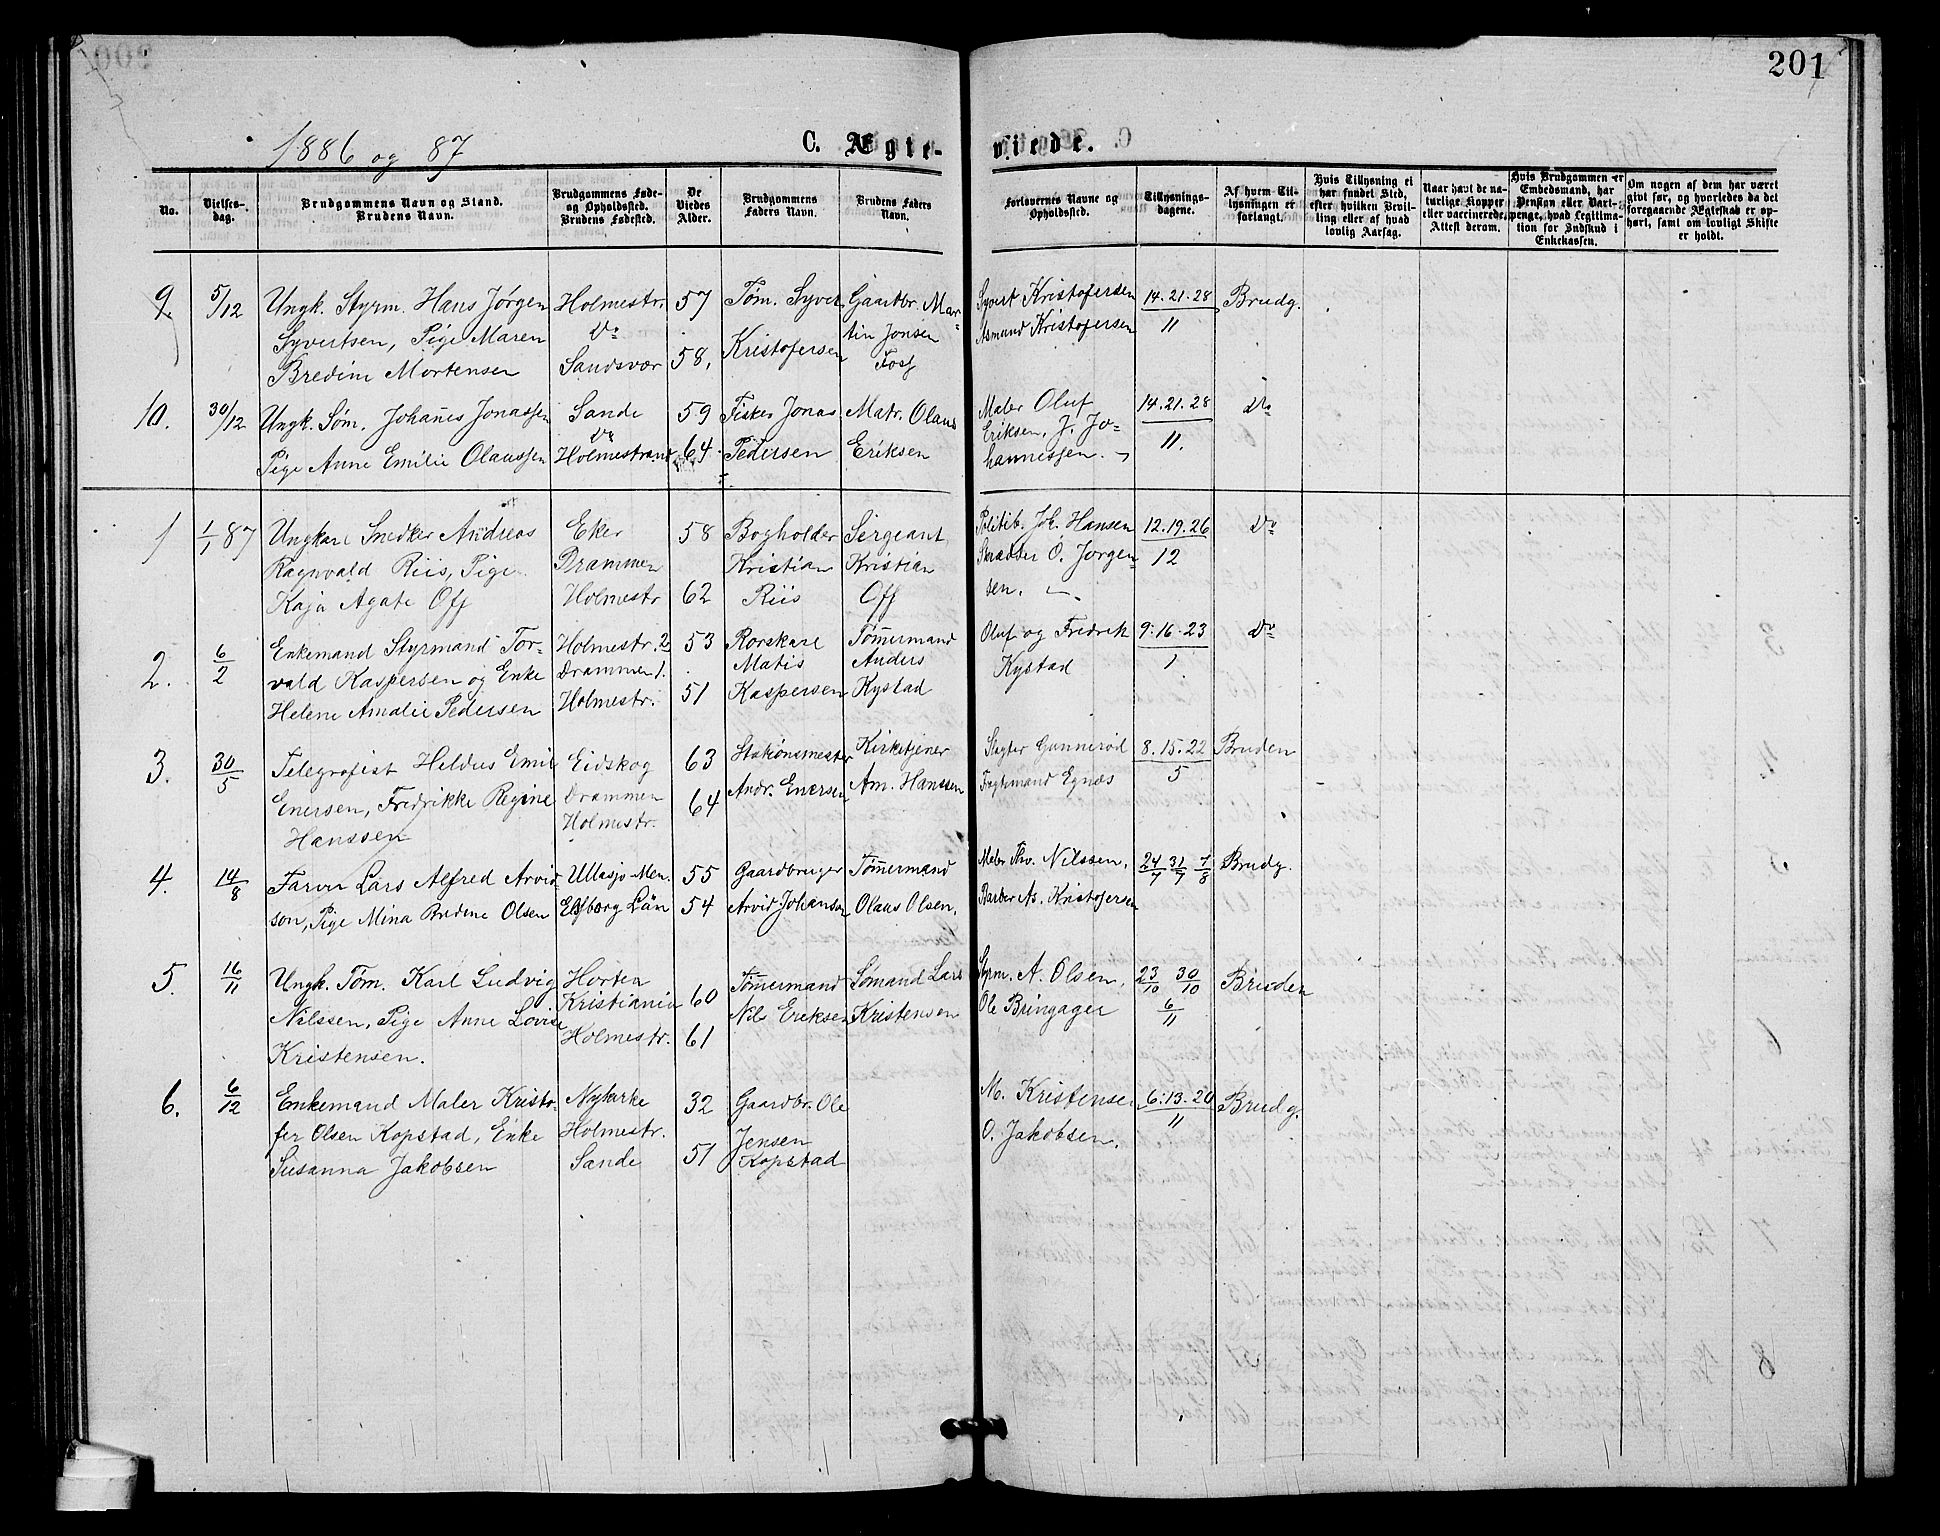 201
1886 og 87
C. Ægte-
viede.
No.
Vielses-
dag.
Brudgommens Navn og Stand.
Brudens Navn.
Brudgommens Føde-
og Opholdssted.
Brudens Fødested.
De
Viedes
Alder.
Brudgommens
Faders Navn.
Brudens Faders
Navn.
Forlovernes Navne og
Opholdssted.
Tillysnings-
dagene.
Af hvem Til-
lysningen er
forlangt.
Hvis Tillysning ei
har fundet Sted,
efter hvilken Bevil-
ling eller af hvad
lovlig Aarsag.
Naar havt de na-
turlige Kopper
eller vaccinerede,
Attest derom.
Hvis Brudgommen er
Embedsmand, har
Pension eller Vart-
penge, hvad Legitima-
tion for Indskud i
Enkekassen.
Om nogen af dem har været
givt før, og hvorledes da det
foregaaende Ægteskab er op-
hørt, samt om lovligt Skifte
er holdt.
9.
5/12
Ungk. Styrm. Hans Jørgen
Syvertsen, Pige Maren
Bredine Mortensen
Holmestr.
Do
Sandsvær
57
58.
Tøm. Syvert
Kristofersen
Gaardbr. Mar-
tin Jonsen
Foss
Syvert Kristofersen
Asmund Kristofersen
14. 21. 28
11
Brudg.
10.
30/12
Ungk. Søm. Johañes Jonassen
Pige Anne Emilie Olaussen
Sande
Do
Holmestrand
59
64
Fisker Jonas
Pedersen
Matr. Olaus
Eriksen
Maler Oluf
Eriksen, J. Jo-
hannessen.
14. 21. 28
11.
Do
1
1/1 87
Ungkarl Snedker Andreas
Ragnvald Riis, Pige
Kaja Agate Off
Eker
Drammen
Holmestr
58
62
Bogholder
Kristian
Riis
Sergeant
Kristian
Off
Politib. Joh. Hansen
Skrædder O. Jorgen-
sen.
12. 19. 26
12
Do
2.
6/2
Enkemand Styrmand Tor-
vald Kaspersen og Enke
Helene Amalie Pedersen
Holmestr. 2
Drammen 1.
Holmestr.
53
51
Rorskarl
Matis
Kaspersen
Tømermand
Anders
Kystad
Oluf og Fredrik
Kystad
9. 16. 23
1
Do
3.
30/5
Telegrafist Heldus Emil
Enersen, Fredrikke Regine
Hanssen
Eidskog
Drammen
Holmestr.
63
64
Stationsmester
Andr. Enersen
Kirketjener
Am. Hanssen
Slagter Gunnerød
Fogtmand Egnæs
8. 15. 22
5
Bruden
4.
14/8
Farver Lars Alfred Arvid-
son, Pige Mina Bredine Olsen
Ullasjo Men.
Elfborg Län
55
54
Gaardbruger
Arvid Johanson
Tømermand
Olaus Olsen.
Maler Thv. Nilssen,
Barber As. Kristofersen
24/7 31/7 7/8
Brudg.
5.
16/11
Ungk. Tøm. Karl Ludvig
Nilssen, Pige Anne Lovise
Kristensen.
Horten
Kristiania
Holmestr.
60
61
Tømermand
Nils Eriksen
Sømand Lars
Kristensen
Styrm. A. Olsen,
Ole Bringager
23/10 30/10
6/11
Bruden
6.
6/12
Enkemand Maler Kristo-
fer Olsen Kopstad, Enke
Susanna Jakobsen
Nykirke
Holmestr.
Sande
32
51
Gaardbr. Ole
Jensen
Kopstad
M. Kristensen
O. Jakobsen.
6. 13. 20
11
Brudg.